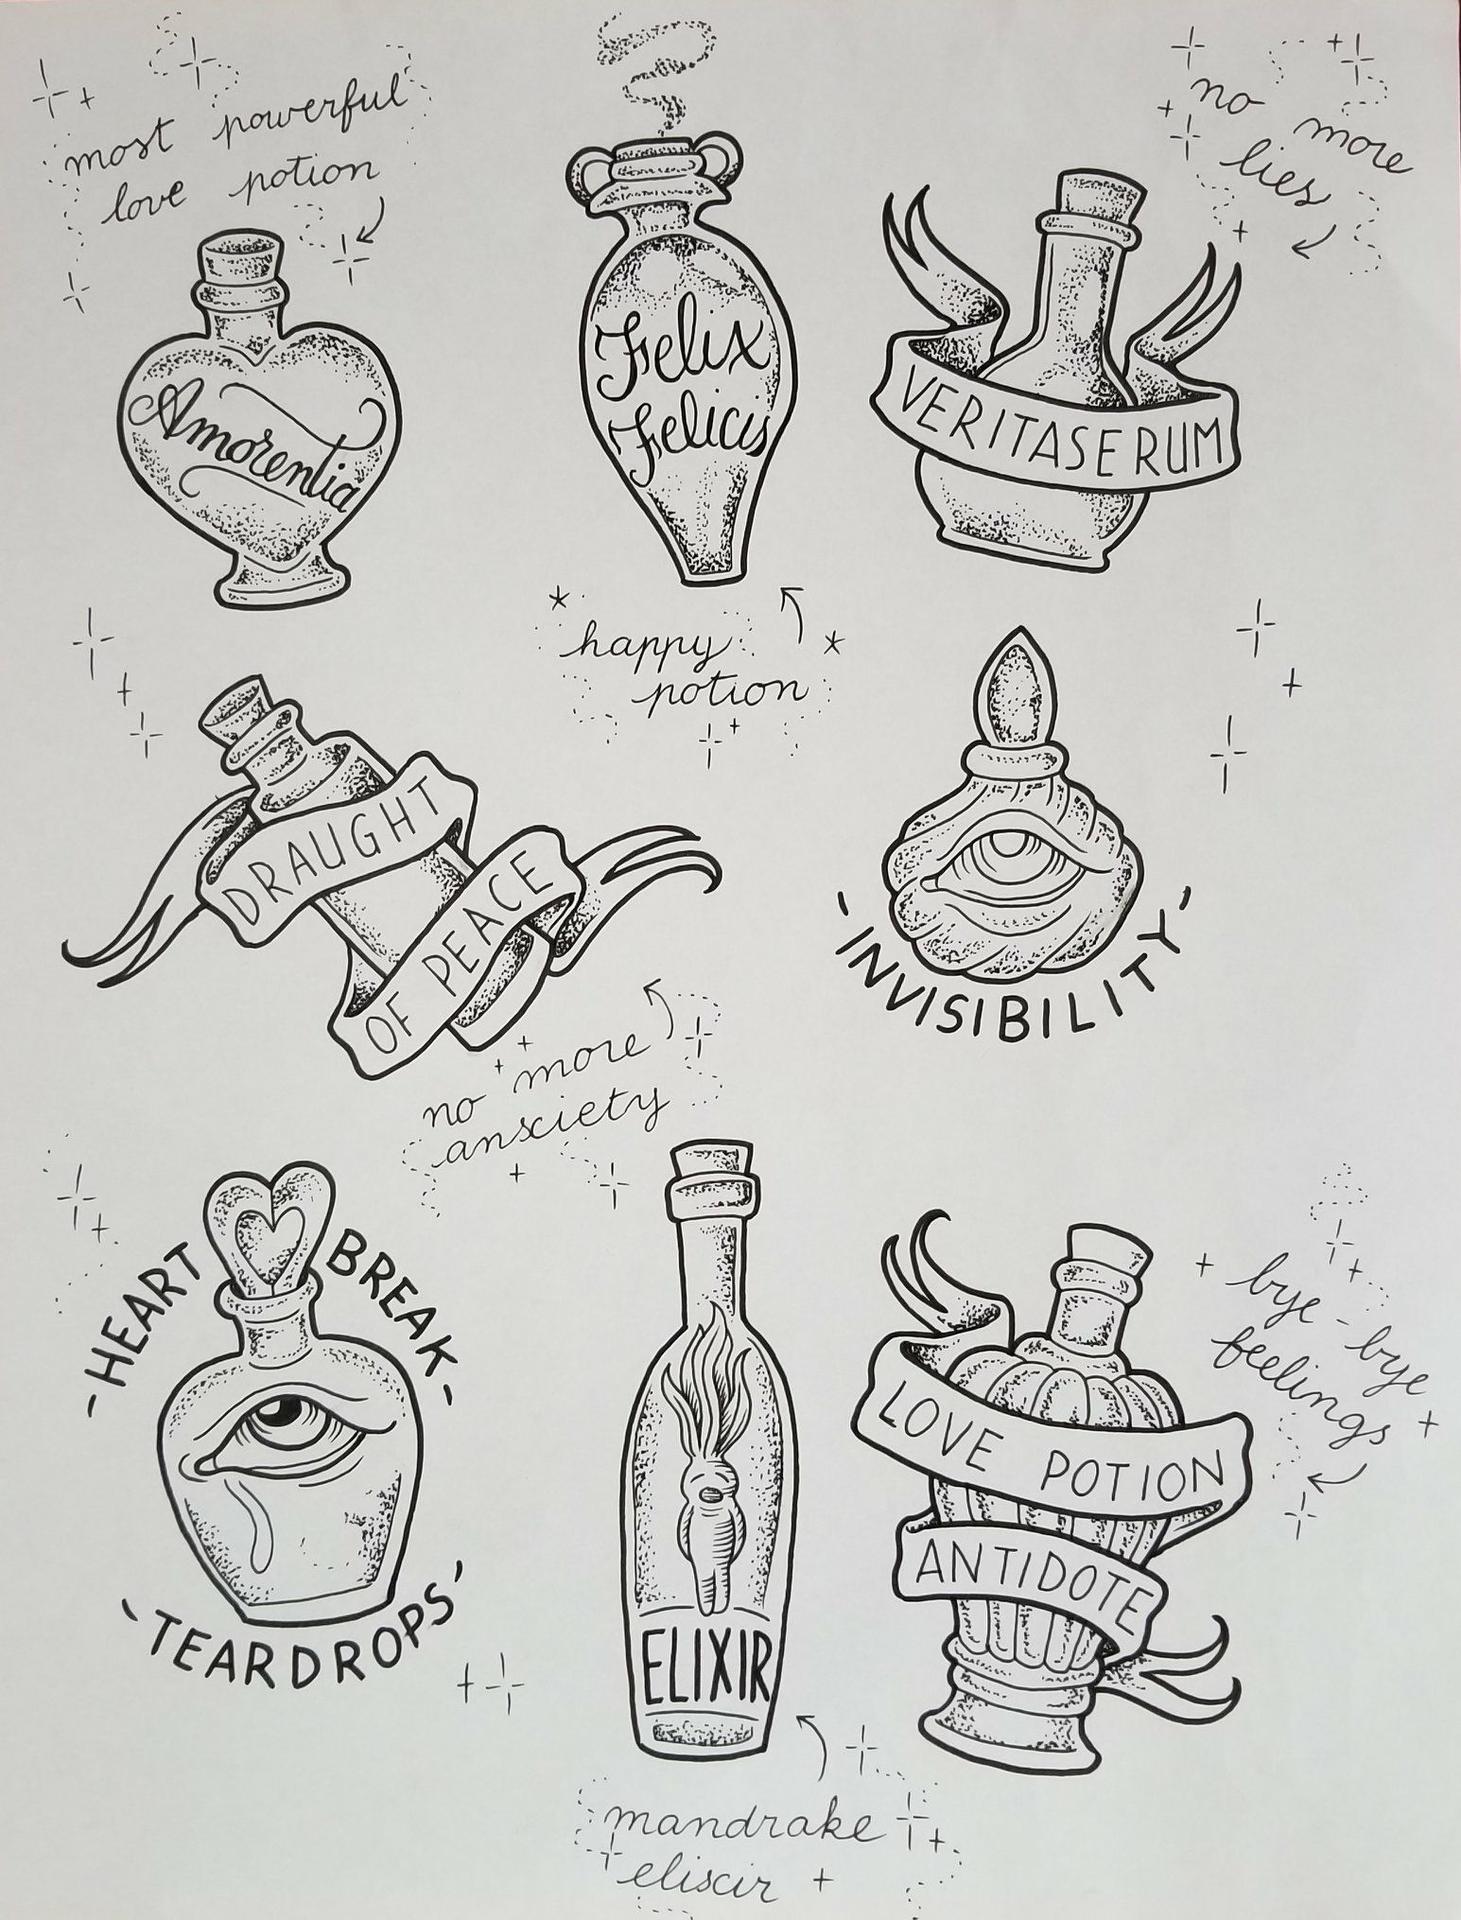 most powerful
love potion
no more
lies
Amorentia
Felix
Felicis
VERITASERUM
happy
potion
DRAUGHT
OF PEACE
INVISIBILITY
no more
anxciety
HEART BREAK
TEARDROPS
ELIXIR
bye-bye
feelings
LOVE POTION
ANTIDOTE
mandrake
elixcir